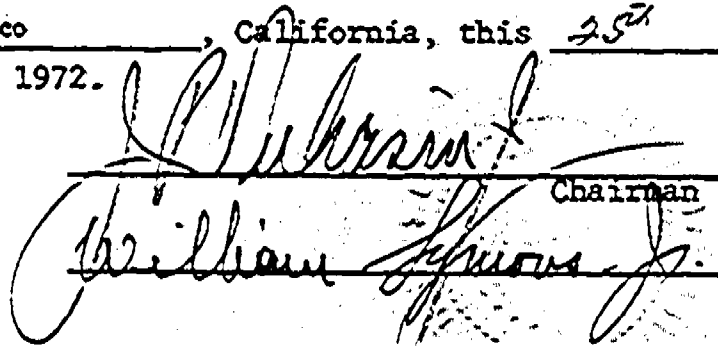 co, California, this 25th
1972.
Chairman
William Symons Jr.